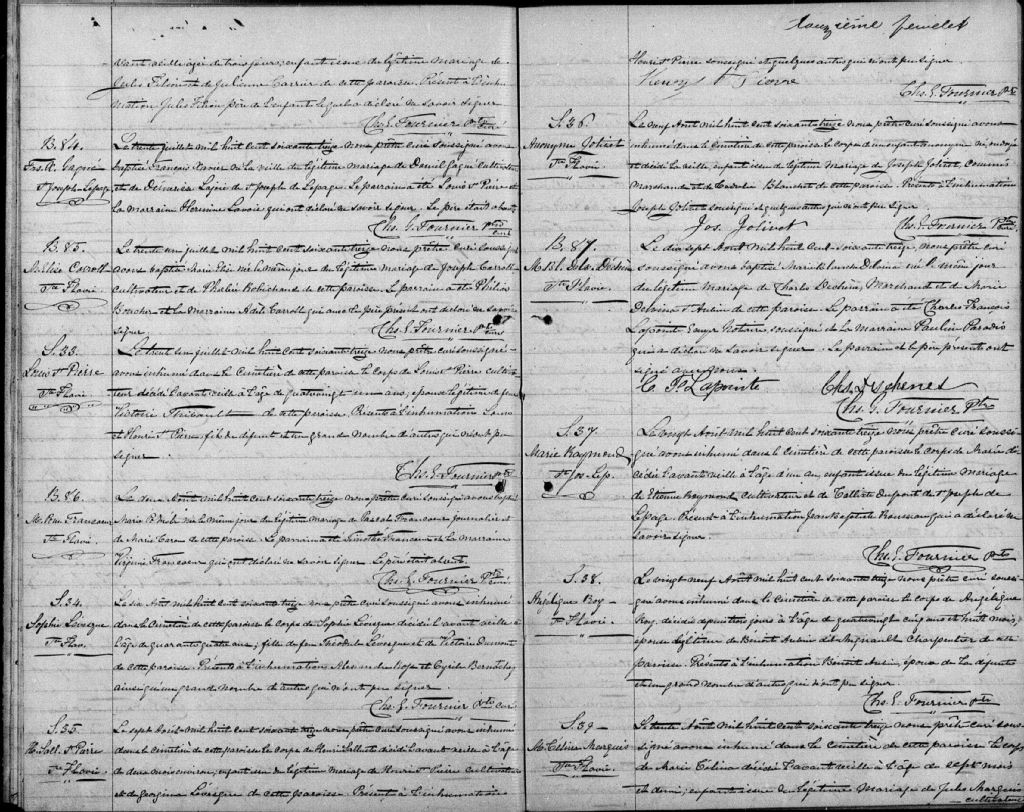 avant veille âgé de trois jours, enfant issu du légitime mariage de
Jules et de Julienne Carrier de cette paroisse. Présent à l'inhu-
mation Jules père de l'enfant lequel a déclaré savoir signer
Chs. G. Fournier Ptre Curé
B. 84.
St Joseph Lepage
Le trente juillet mil huit cent soixante treize nous prêtre curé soussigné avons
baptisé François légitime mariage de cultivateur
et de de St Joseph de Lepage. Le parrain a été Louis St Pierre et
la marraine Hermine Lavoie qui ont déclaré ne savoir signer. Le père étant absent
Chs. G. Fournier Ptre Curé
B. 85.
Ste Flavie.
Le trente un juillet mil huit cent soixante treize nous prêtre curé soussigné
avons baptisé Marie né le même jour du légitime mariage de Joseph Carroll
cultivateur et de Robichaud de cette paroisse. Le parrain a été
Boucher et la marraine Adèle Carroll qui avec le père présent ont déclaré ne savoir
signer
Chs. G. Fournier Ptre Curé
S. 33.
Louis St Pierre
Ste Flavie
Le trente un juillet mil huit cent soixante treize nous prêtre curé soussigné
avons inhumé dans le Cimetière de cette paroisse le corps de Louis St Pierre cultiva-
teur décédé l'avant veille à l'âge de quatre vingt ans, époux légitime de feue
Victoire Thibault de cette paroisse. Présents à l'inhumation Louis
et Henri St Pierre fils du défunt et un grand nombre d'autres qui n'ont pu
signer
Chs. G. Fournier Ptre
B. 86.
Ste Flavie.
Le deux Août mil huit cent soixante treize nous prêtre curé soussigné avons baptisé
Marie née le même jour du légitime mariage de Pascal Francoeur journalier et
de Marie de cette paroisse. Le parrain a été Francoeur et la marraine
Virginie Francoeur qui ont déclaré ne savoir signer. Le père étant absent.
Chs. G. Fournier Ptre Curé
S. 34.
Sophie Levesque
Ste Flav.
Le six Août mil huit cent soixante treize nous prêtre curé soussigné avons inhumé
dans le Cimetière de cette paroisse le corps de Sophie Lévesque décédé l'avant veille à
l'âge de quarante quatre ans, fille de feu Théodule Lévesque et de Victoire Dumont
de cette paroisse. Présents à l'inhumation Alexandre et
ainsi qu'un grand nombre d'autres qui n'ont pu signer.
Chs. G. Fournier Ptre Curé
S. 35.
St Pierre
Ste Flavie
Le sept Août mil huit cent soixante treize nous prêtre curé soussigné avons inhumé
dans le cimetière de cette paroisse le corps de Henri décédé l'avant veille à l'âge
de deux mois environ, enfant issu du légitime mariage de Henri St Pierre cultivateur
et de Georgina Lévesque de cette paroisse. Présent à l'inhumation
feuillet
Henri St Pierre soussigné et quelques autres qui n'ont pu signer.
Henry St Pierre
Chs. G. Fournier Ptre
S. 36.
Anonyme Jolivet
Ste Flavie
Le neuf Août mil huit cent soixante treize nous prêtre curé soussigné avons
inhumé dans le cimetière de cette paroisse le corps d'un enfant anonyme né, ondoyé
et décédé la veille, enfant issu du légitime mariage de Joseph Jolivet Commis
Marchand et de Blanchet de cette paroisse. Présents à l'inhumation
Joseph Jolivet soussigné et quelques autres qui n'ont pu signer
Jos. Jolivet
Chs. G. Fournier Ptre Curé
B. 87.
Ste Flavie.
Le dix sept Août mil huit cent soixante treize, nous prêtre curé
soussigné avons baptisé Marie Blanche née le même jour
du légitime mariage de Charles Deschênes, Marchand et de Marie
St Aubin de cette paroisse. Le parrain a été Charles François
Lapointe Ecuyer Notaire, soussigné et la marraine Pauline Paradis
qui a déclaré ne savoir signer. Le parrain et le père présents ont
signé avec nous.
C. F. Lapointe
Chs. Dechenes
Chs. G. Fournier Ptre
S. 37
Marie Raymond
St Jos. Lep.
Le vingt Août mil huit cent soixante treize nous prêtre curé soussi-
gné avons inhumé dans le cimetière de cette paroisse le corps de Marie
décédée l'avant veille à l'âge d'un an enfant issue du légitime mariage
de Etienne Raymond cultivateur et de Dupont de St Joseph de
Lepage. Présent à l'inhumation Jean Baptiste Rousseau qui a déclaré ne
savoir signer.
Chs. G. Fournier Ptre
S. 38.
Angélique Roy
Ste Flavie.
Le vingt neuf Août mil huit cent soixante treize nous prêtre curé soussi-
gné avons inhumé dans le cimetière de cette paroisse le corps de Angélique
Roy, décédée depuis trois jours à l'âge de quatre vingt cinq ans et huit mois,
épouse légitime de Benoit Aubin dit Mignault Charpentier de cette
paroisse. Présents à l'inhumation Benoit Aubin, époux de la défunte
et un grand nombre d'autres qui n'ont pu signer.
Chs. G. Fournier Ptre
S. 39
M. Célina Marquis
Ste Flavie.
Le trente Août mil huit cent soixante treize nous prêtre curé sous-
signé avons inhumé dans le cimetière de cette paroisse le corps
de Marie Célina décédée l'avant veille à l'âge de sept mois
et demi, enfant issue du légitime mariage de Jules Marquis
cultivateur